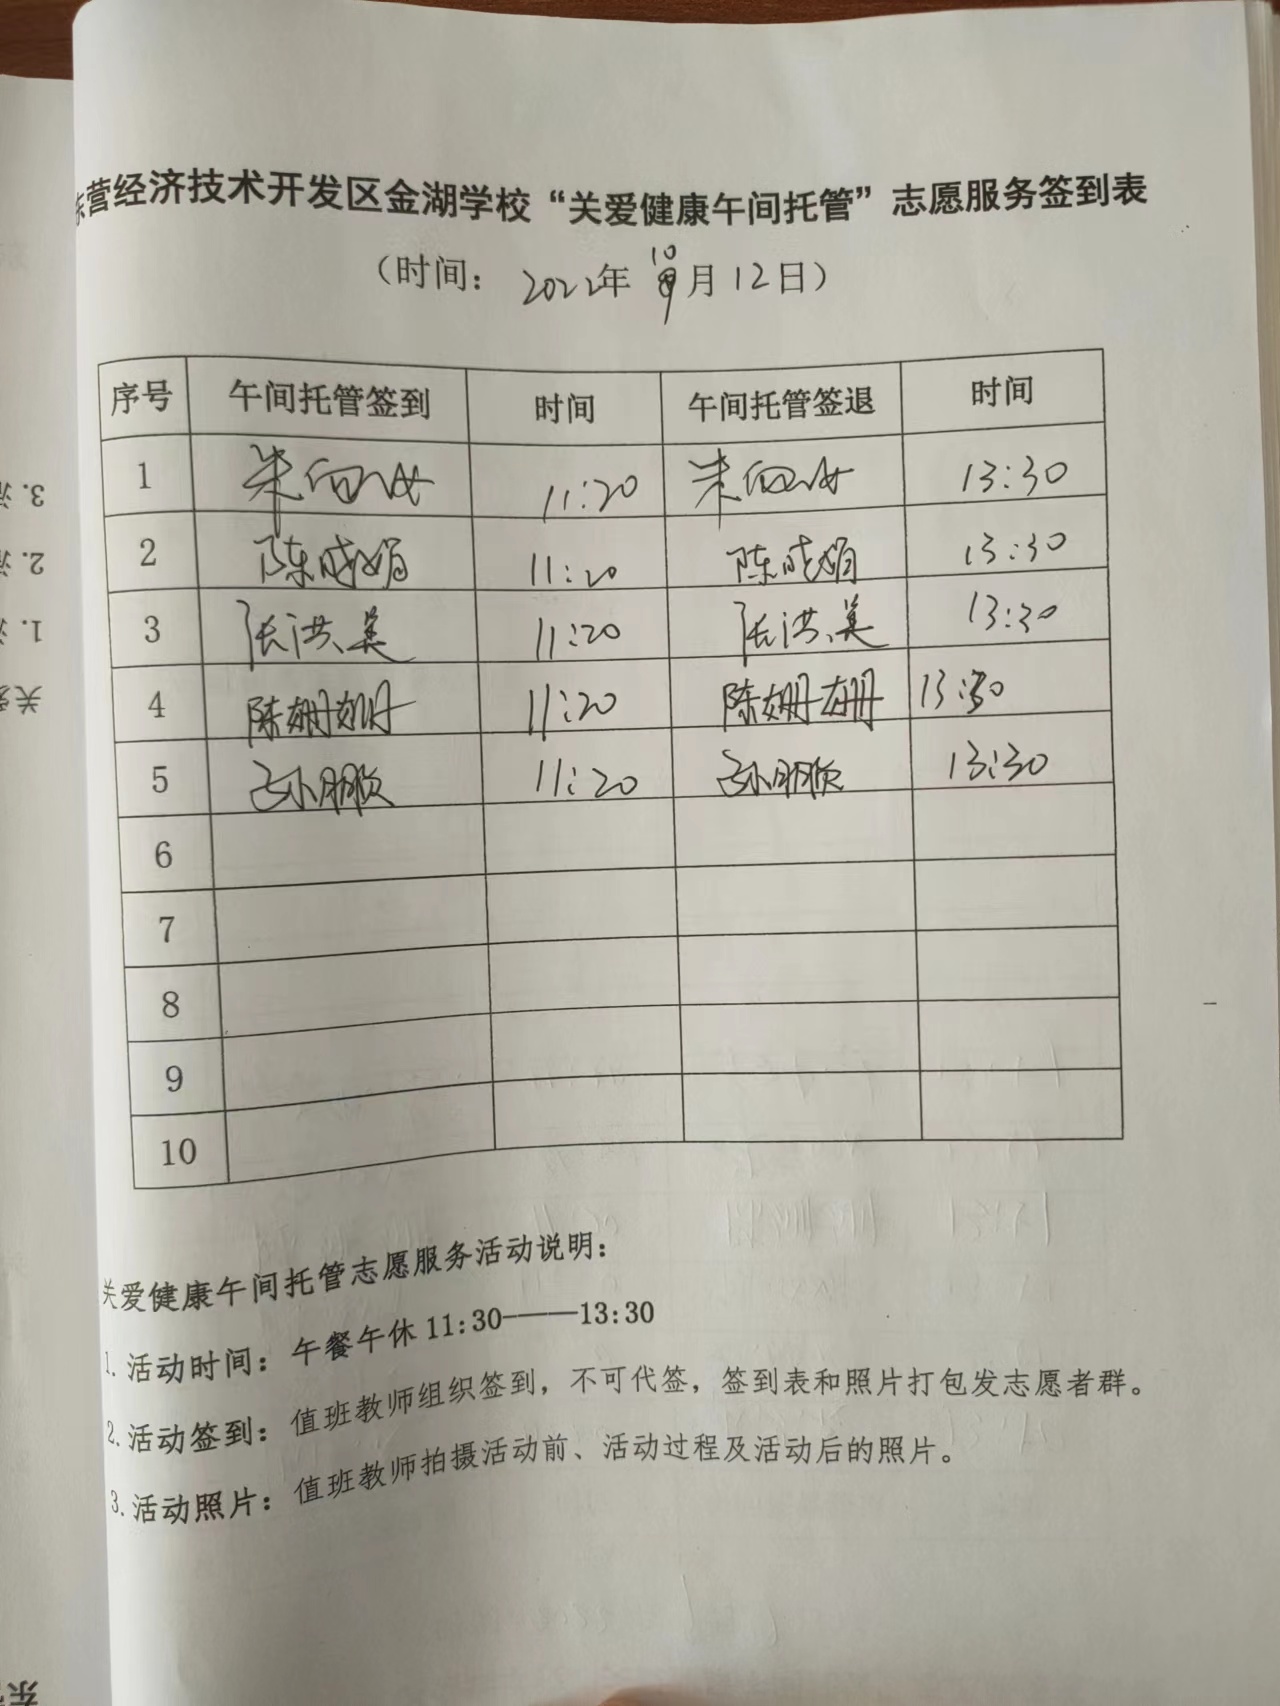 东营经济技术开发区金湖学校“关爱健康午间托管”志愿服务签到表
（时间： 2022年 10月12日）
序号 午间托管签到 时间 午间托管签退 时间
1 朱 11:20 朱 13:30
2 陈晓娟 11:20 陈晓娟 13:30
3 张洪美 11:20 张洪美 13:30
4 陈姗姗 11:20 陈姗姗 13:30
5 孙朋欣 11:20 孙朋欣 13:30
6
7
8
9
10
关爱健康午间托管志愿服务活动说明：
1.活动时间：午餐午休 11:30———13:30
2.活动签到：值班教师组织签到，不可代签，签到表和照片打包发志愿者群。
3.活动照片：值班教师拍摄活动前、活动过程及活动后的照片。